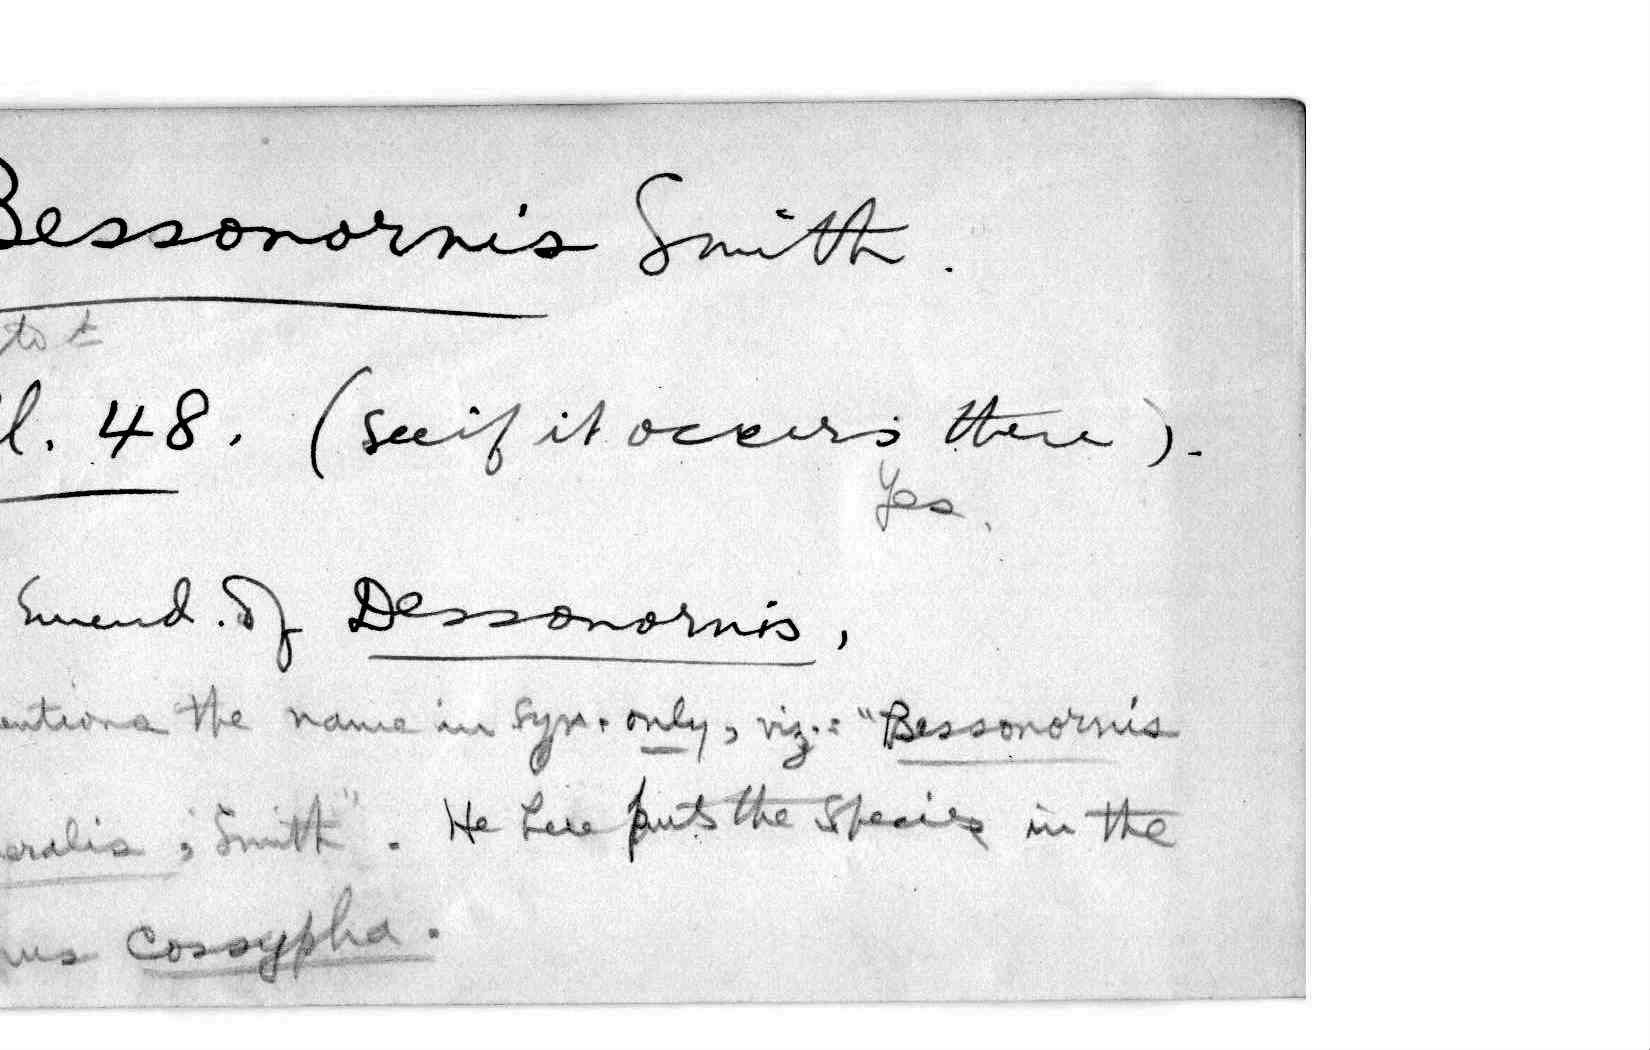 Bessonornis Smith.
to
l. 48. (see if it occurs there).
Yes.
Emend. of Dessonornis,
entions the name in syn. only, viz.: "Bessonornis
eralis, Smith". He here puts the species in the
nus Cossypha.